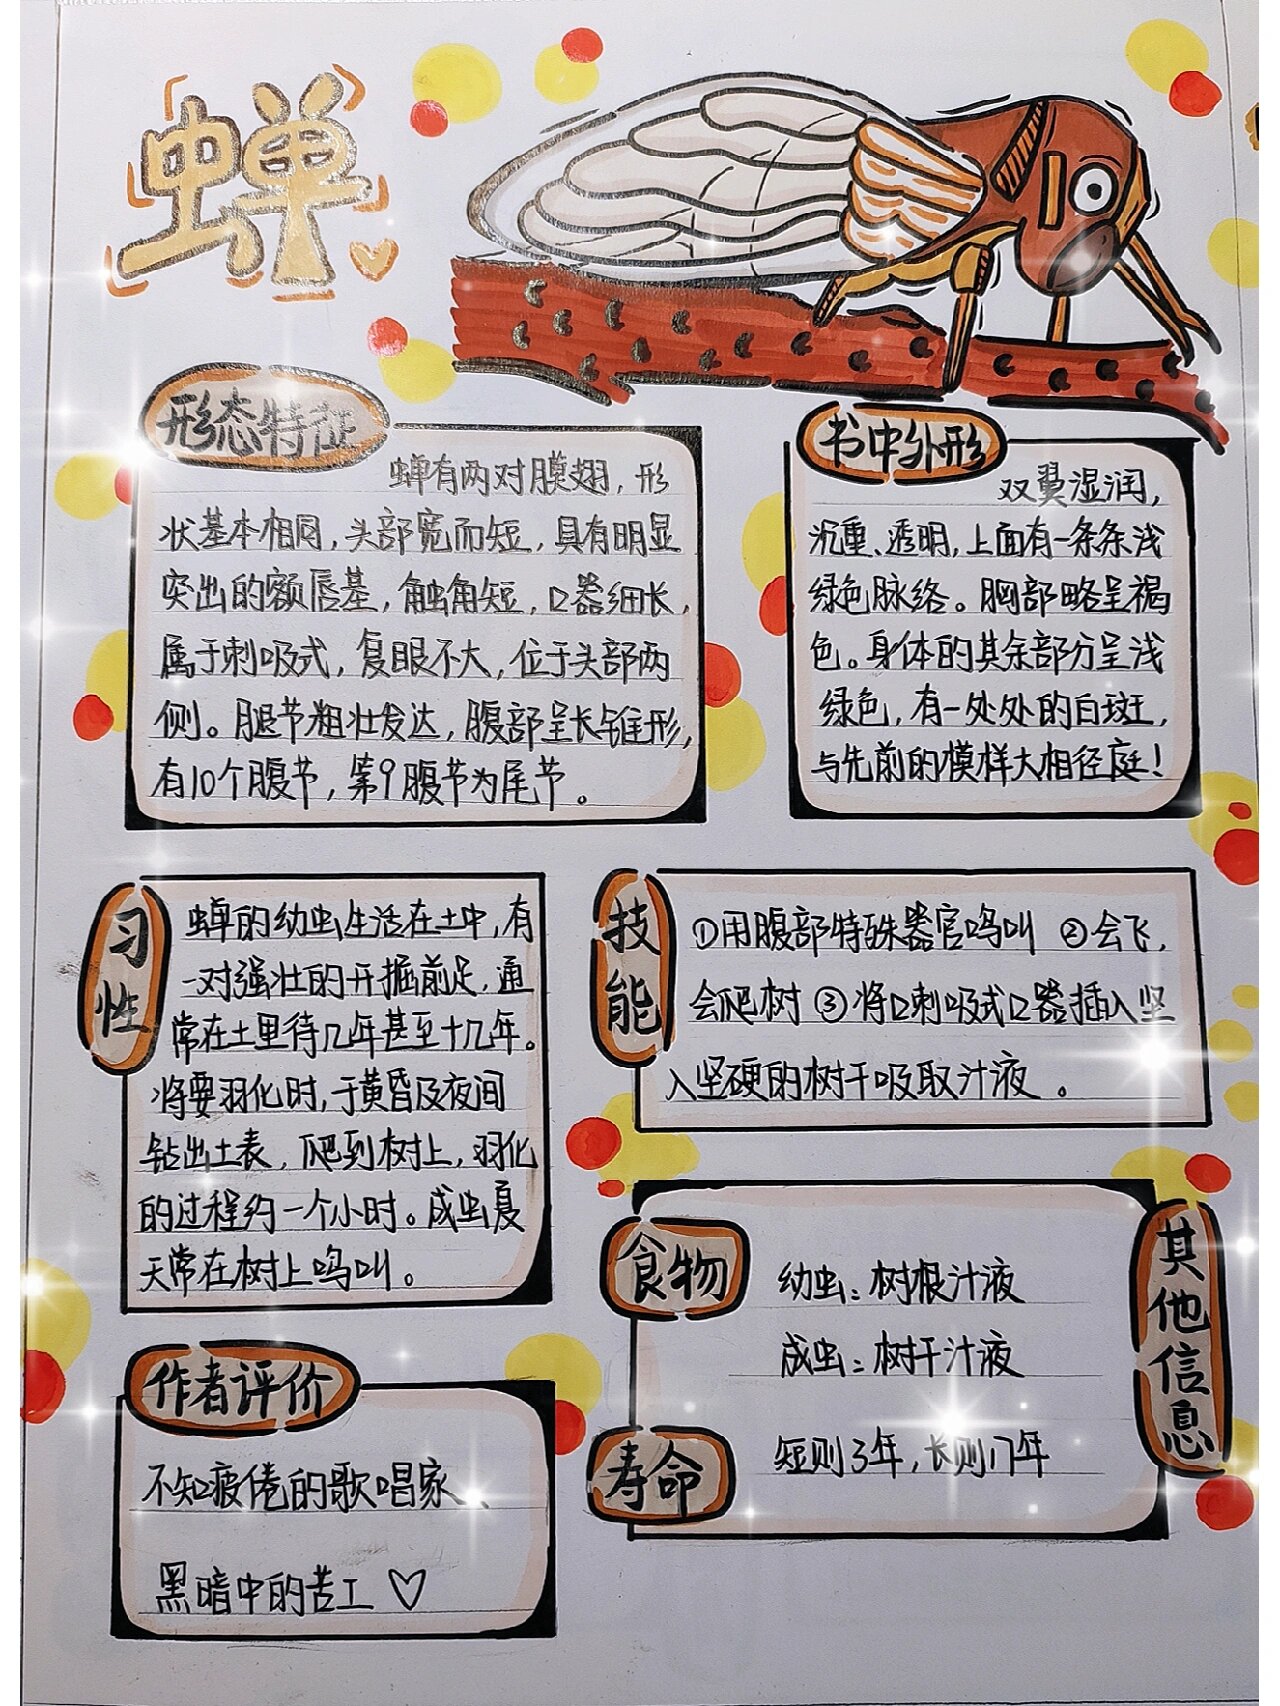 蝉
形态特征
蝉有两对膜翅，形
状基本相同，头部宽而短，具有明显
突出的额唇基，触角短，口器细长，
属于刺吸式，复眼不大，位于头部两
侧。腿节粗壮发达，腹部呈长锥形，
有10个腹节，第9腹节为尾节。
书中外形
双翼湿润，
沉重、透明，上面有一条条浅
绿色脉络。胸部略呈褐
色。身体的其余部分呈浅
绿色，有一处处的白斑，
与先前的模样大相径庭！
习性
蝉的幼虫生活在土中，有
一对强壮的开掘前足，通
常在土里待几年甚至十几年。
将要羽化时，于黄昏及夜间
钻出土表，爬到树上，羽化
的过程约一个小时。成虫夏
天常在树上鸣叫。
技能
①用腹部特殊器官鸣叫 ②会飞，
会爬树 ③将口刺吸式口器插入坚
入坚硬的树干吸取汁液。
其他信息
食物
幼虫：树根汁液
成虫：树干汁液
寿命
短则3年，长则17年
作者评价
不知疲倦的歌唱家、
黑暗中的苦工♡